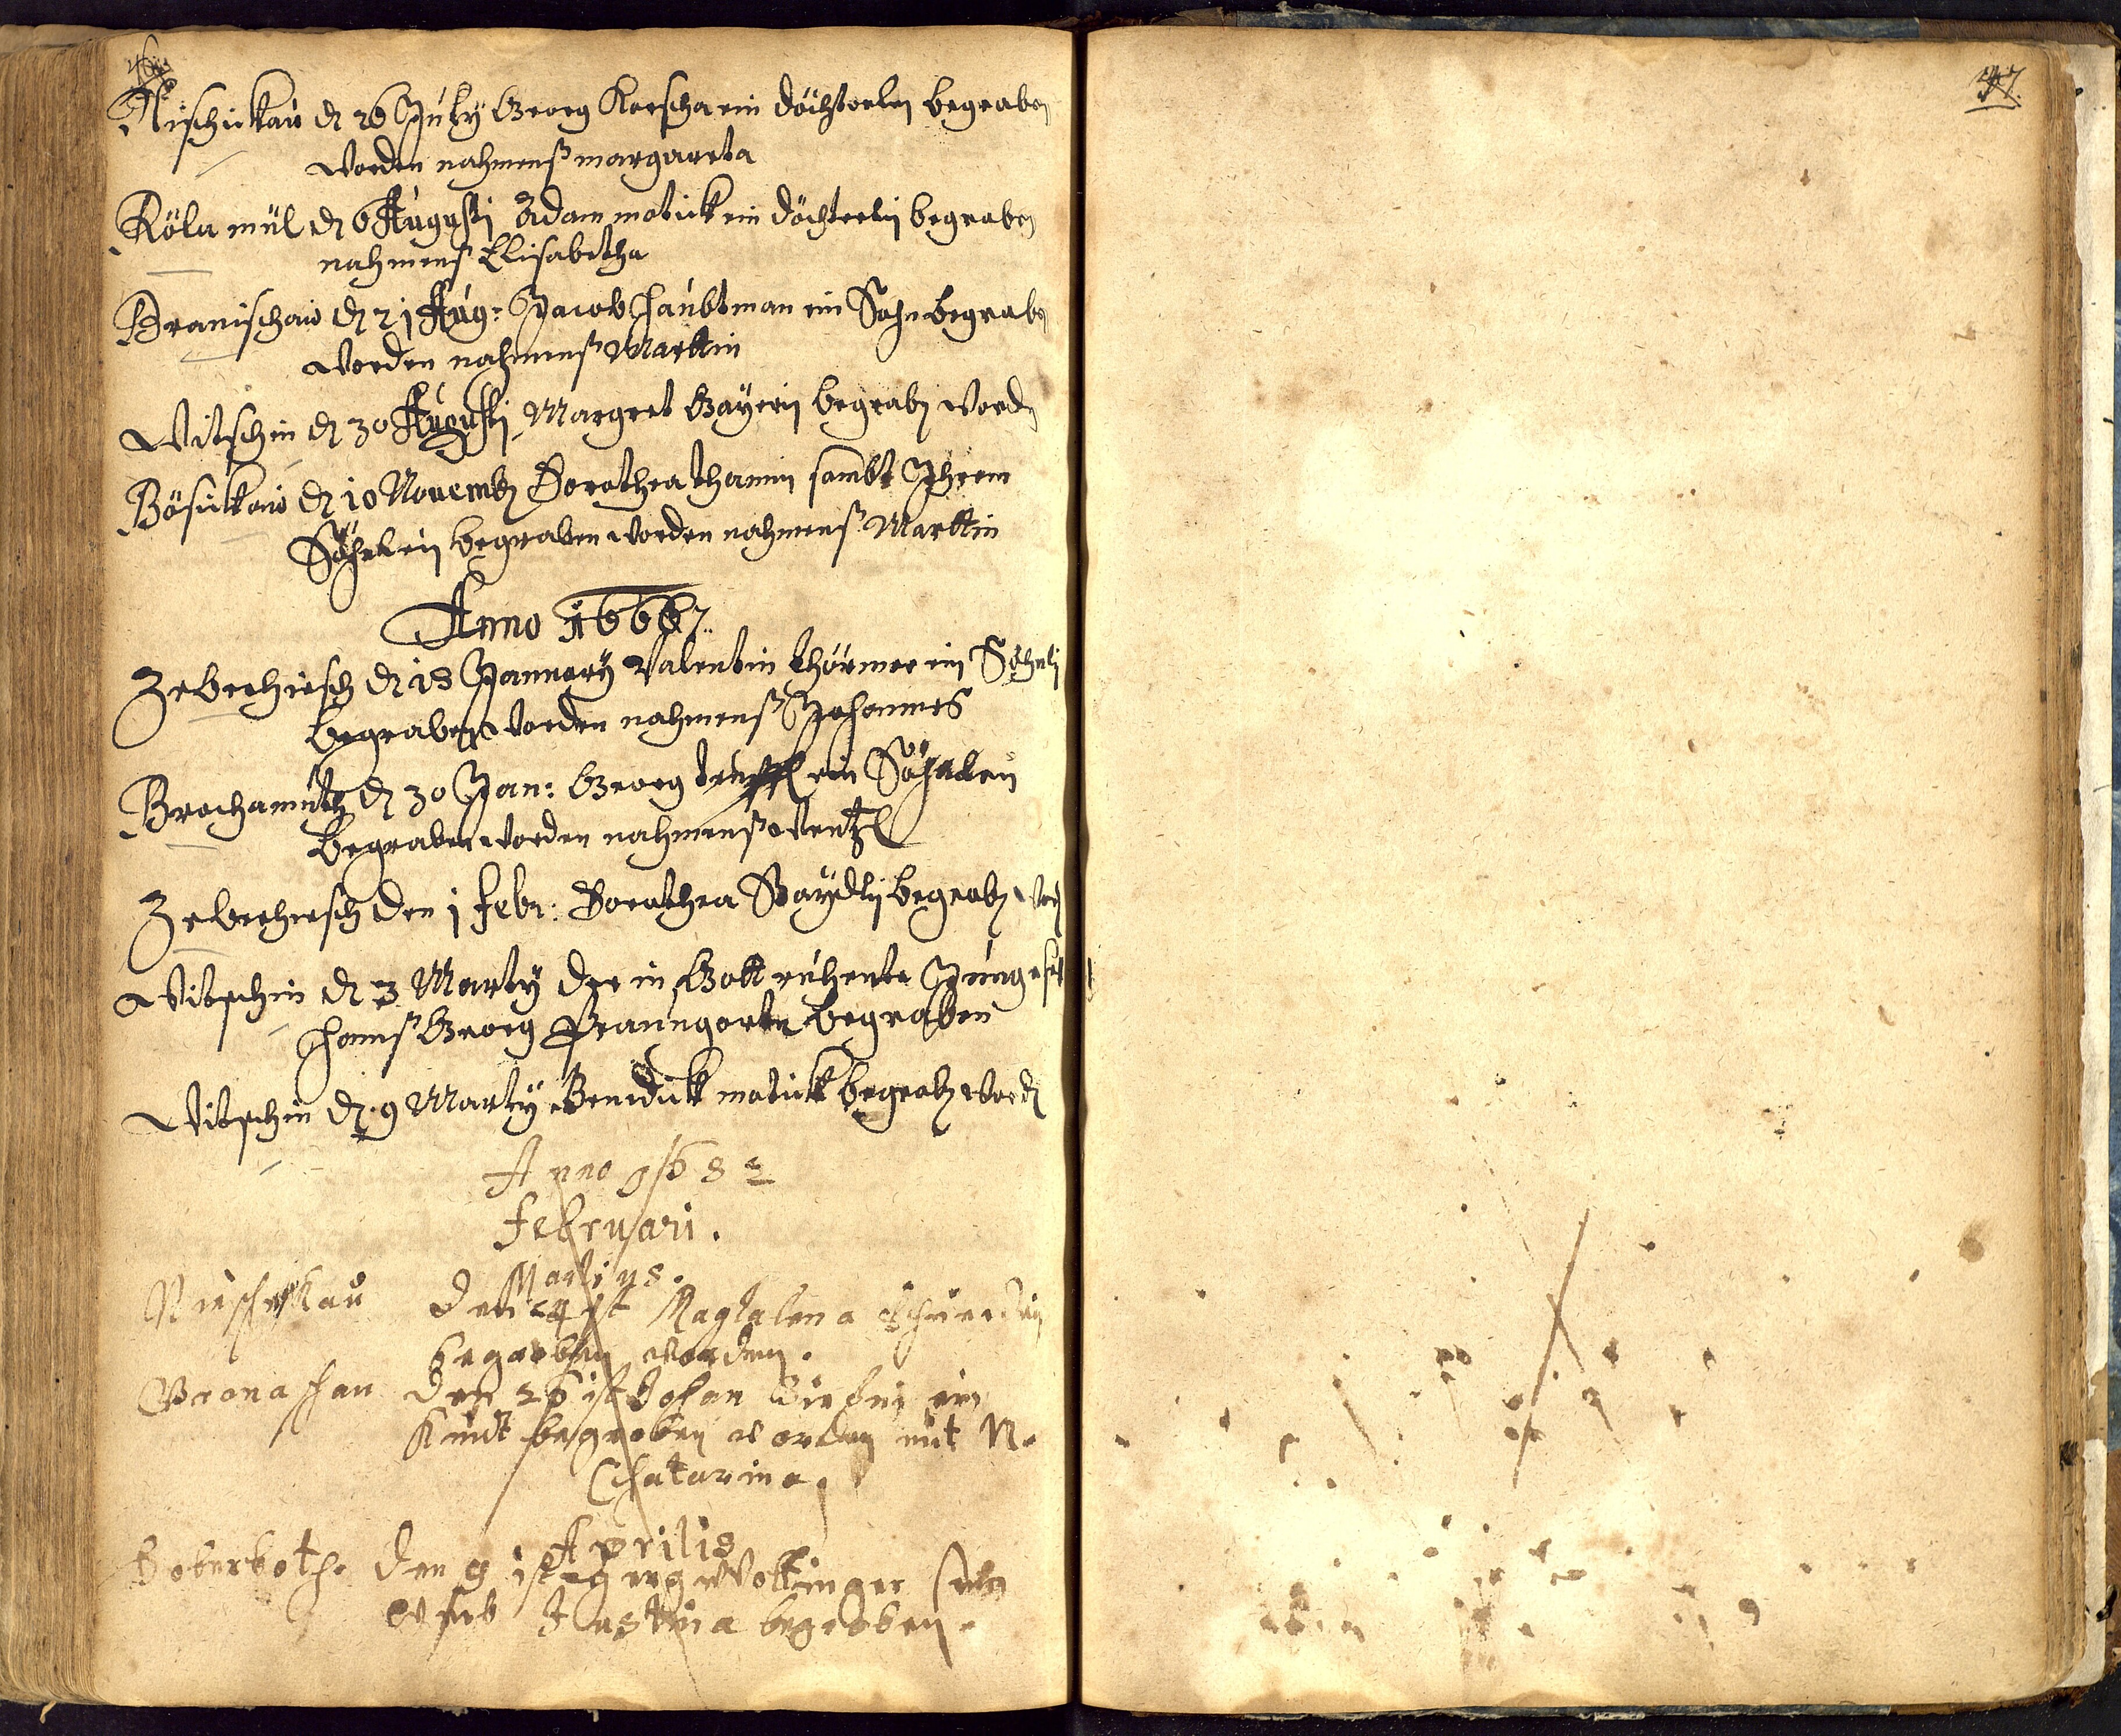 46
Nischickaů dℓ 26 Juły Georg Kerscha ein döchterlej begraben
worden nahmenß margareta
Köla mül dℓ 6 Augustj Adam matick ein döchterlej begraben
nahmenß Elisabetha
Branischaů dℓ 21 Aug: Jacob haubtman ein Sohn begraben
worden nahmenß Marttin
Witschin dℓ 30 Augustj Margret Bayerin begraben worden
Pösickaů dℓ 10 Novemb Dorothea thamin sambt Ihrem
Söhnlein begraben worden nahmenß Marttin
Anno 1667
Zeberhiesch dℓ 18 January Valentin thörmer ein Söhnlj
begraben worden nahmenß Johannes
Prochamuth dℓ 30 Jan: Georg ein Söhnlein
begraben worden nahmenß Wentzl
Zeberhiesch den 1 febr: Dorothea begraben word
Witschin dℓ 3 Marty der in Gott ruhente Junge
hanß Georg begraben
Witschin dℓ 9 Marty Benedick matick begraben word
Anno 168
februari.
Martius.
Nieschekau den 24 ist Magtalena
begraben worden.
den 26 ist Johan ein
Kindt begraben worden mit N.
Chatarina.
Aprilis
den 9 ist gerg Woltinger sein
weib Justina begraben.
47.